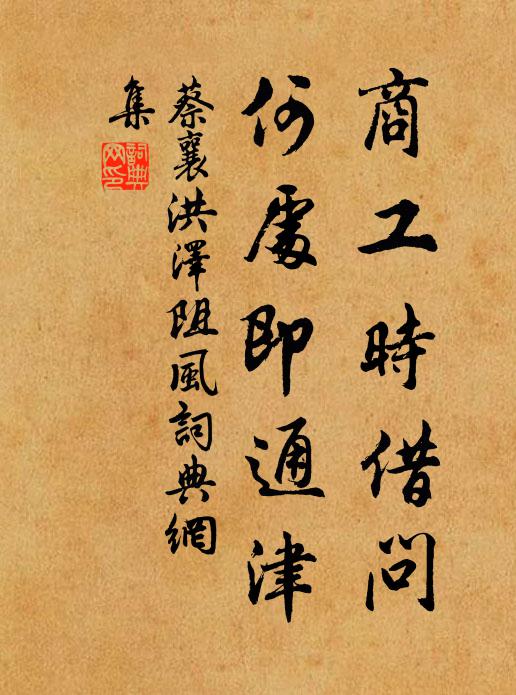 商工時借問
何處即通津
蔡襄洪澤阻風詞典網
集
詞典網印